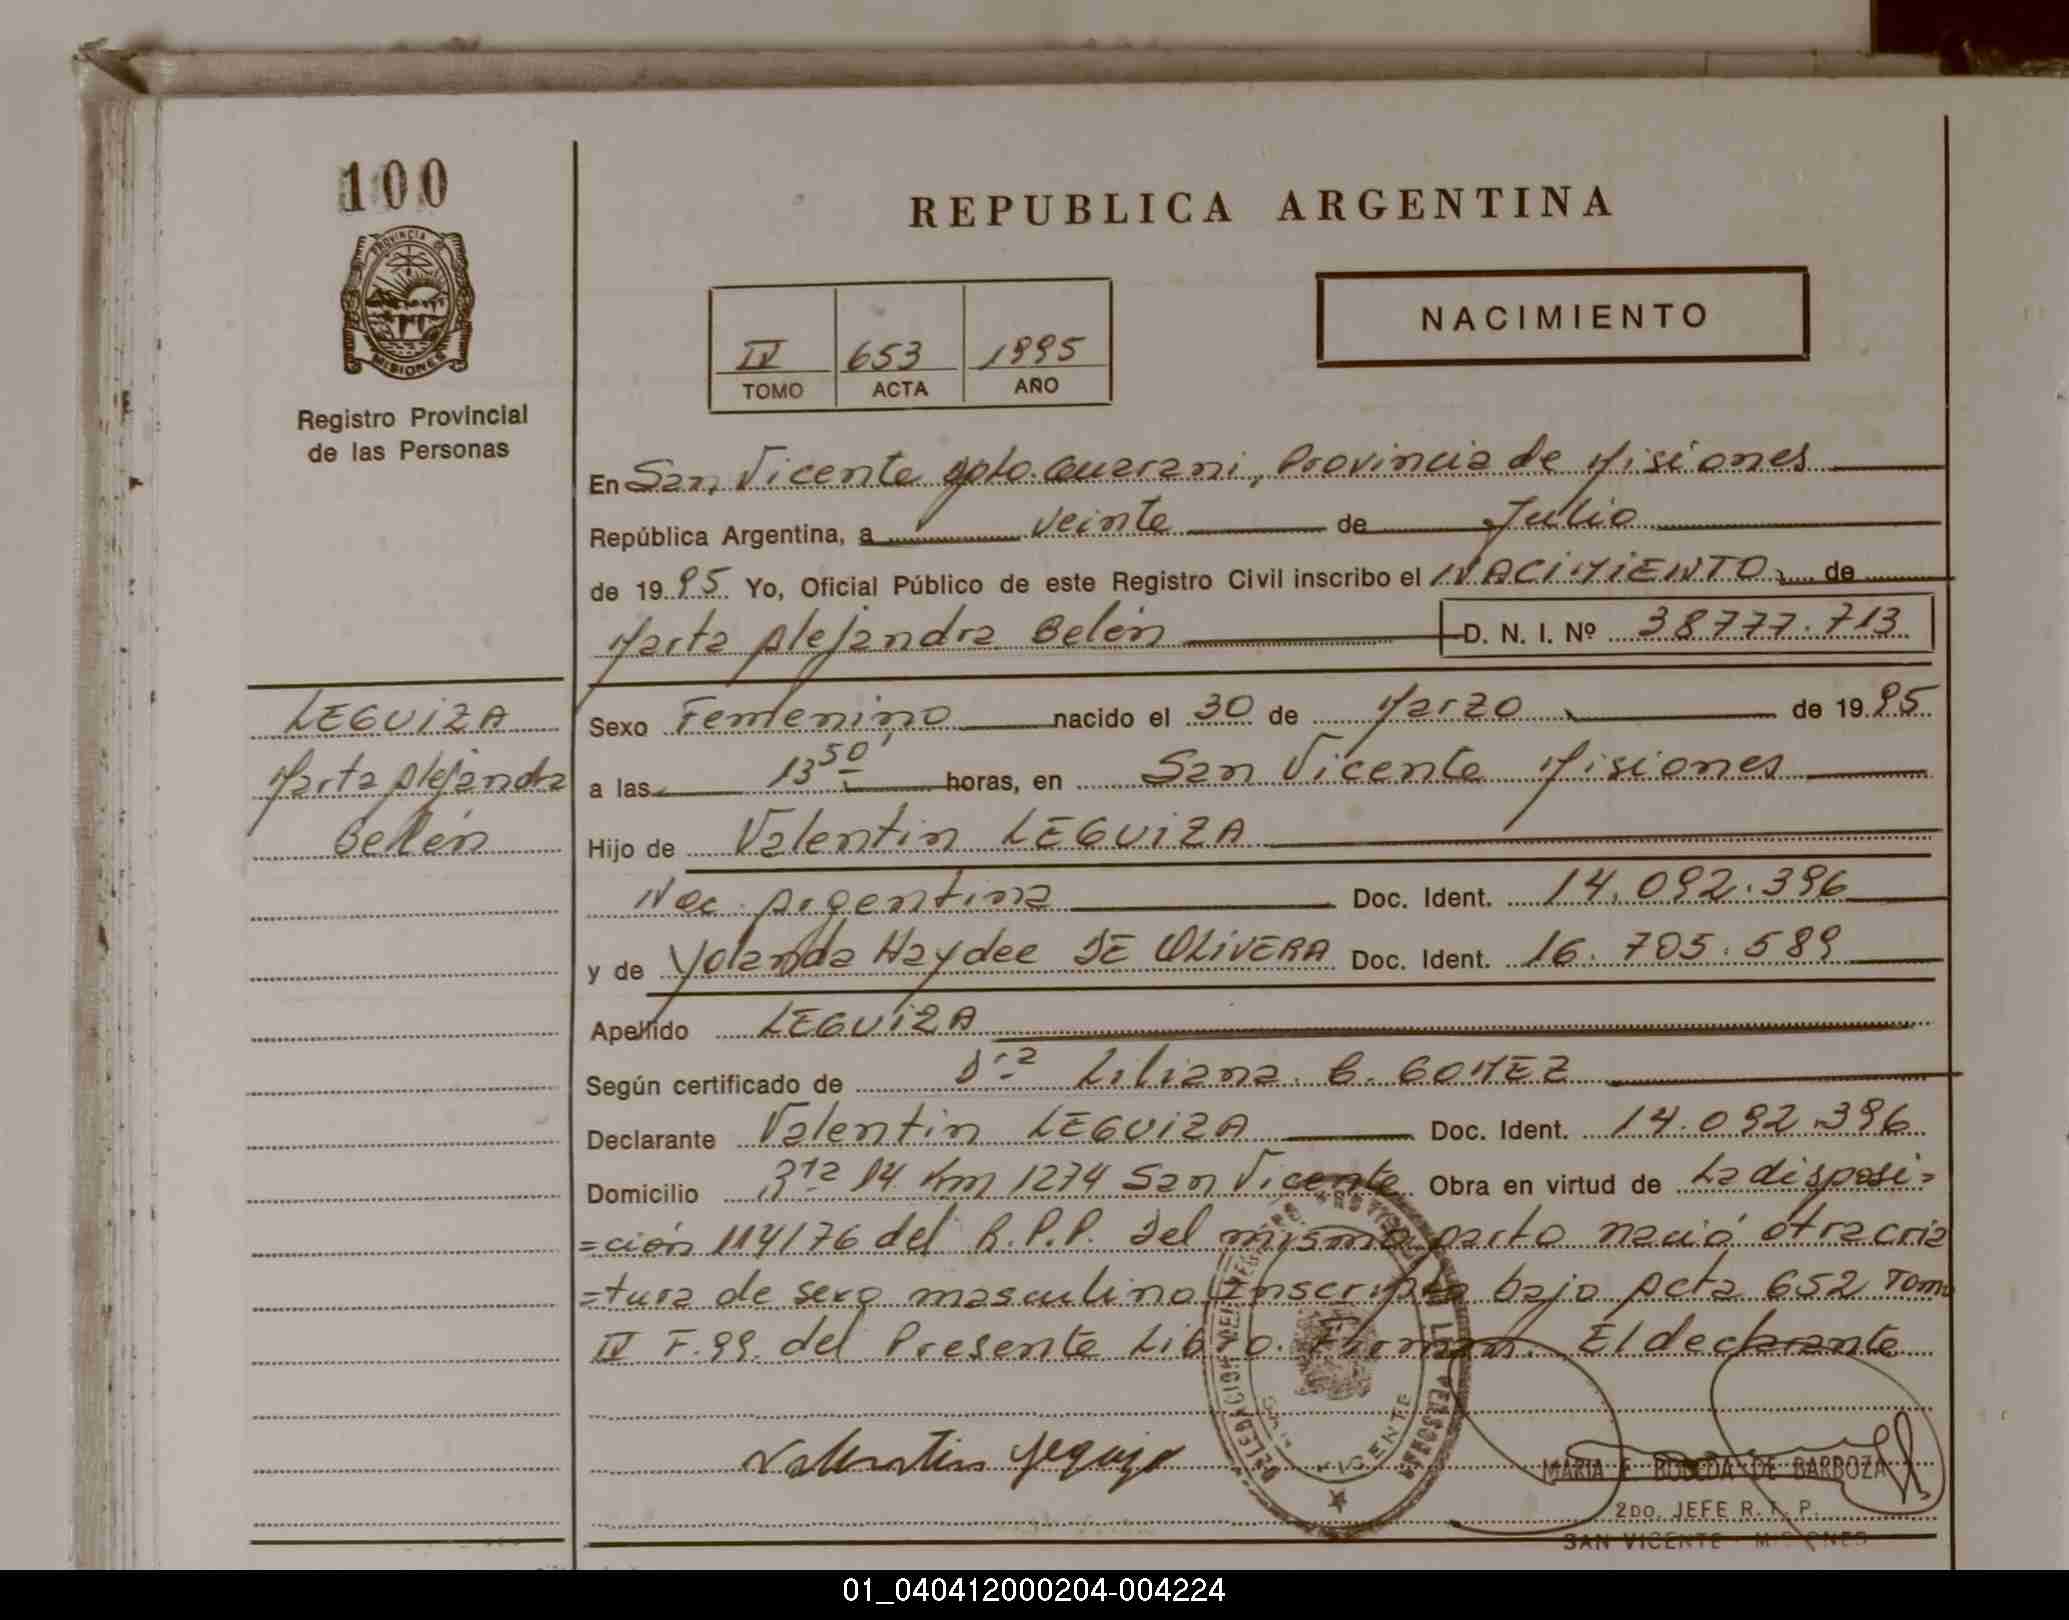 100
PROVINCIA DE
MISIONES
Registro Provincial
de las Personas
REPUBLICA ARGENTINA
IV 653 1995
TOMO ACTA AÑO
NACIMIENTO
En San Vicente Dpto. Guarani, Provincia de Misiones
República Argentina, a veinte de Julio
de 1995 Yo, Oficial Público de este Registro Civil inscribo el NACIMIENTO de
Marta Alejandra Belén D. N. I. Nº 38777.713
LEGUIZA
Marta Alejandra
Belén
Sexo Femenino nacido el 30 de Marzo de 1995
a las 13 50' horas, en San Vicente Misiones
Hijo de Valentin LEGUIZA
Nac. Argentina Doc. Ident. 14.092.396
y de Yolanda Haydee DE OLIVERA Doc. Ident. 16.705.589
Apellido LEGUIZA
Según certificado de Dra Liliana B. GOMEZ
Declarante Valentin LEGUIZA Doc. Ident. 14.092.396
Domicilio Rta 14 Km 1274 San Vicente Obra en virtud de La disposi=
=ción 114/76 del R.P.P. Del mismo parto nació otra cria
=tura de sexo masculino inscripta bajo Acta 652 Tomo
IV F.99. del Presente Libro. Firman. El declarante
DELEGACION
VICENTE
MARIA F. BOBEDA DE BARBOZA
2DO. JEFE R. P. P.
SAN VICENTE - MISIONES
01_040412000204-004224